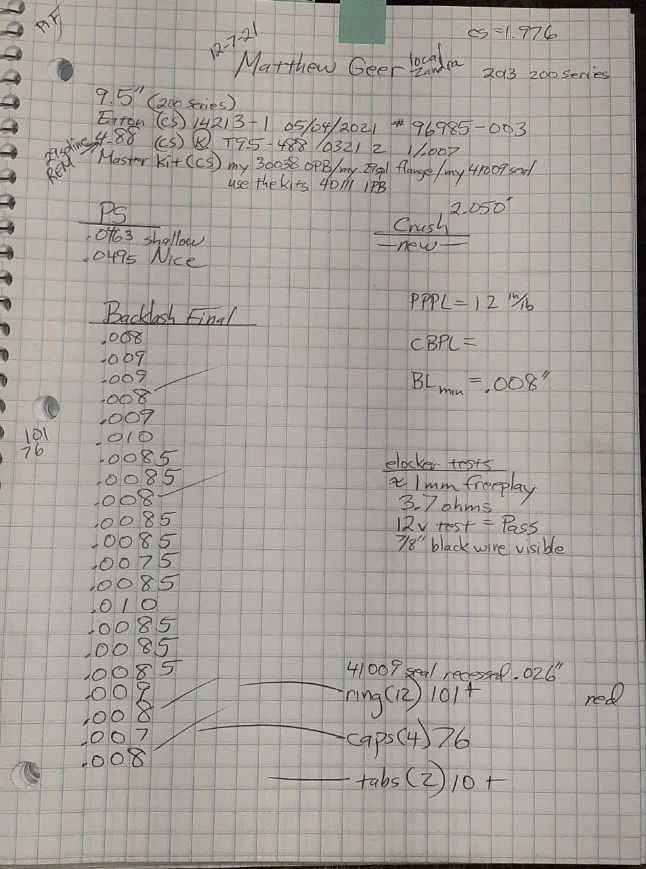 cs=1.976
12-7-21
Matthew Geer local Zandra 2013 200 series
9.5" (200 series)
Eaton (CS) 14213-1 05/04/2021 # 96985-003
4.88 (CS) R T95-488 /0321 2 1/.007
29 spline REM
Master Kit (CS) my 30058 OPB/my 29spl flange/my 41009 seal
use the kits 40111 IPB
PS
.0463 shallow
.0495 Nice
2.050"
Crush
-new-
Backlash Final
.008
.009
.009
.008
.009
.010
.0085
.0085
.008
.0085
.0085
.0075
.0085
.010
.0085
.0085
.0085
.009
.008
.007
.008
101
76
PPPL = 12 in/lb
CBPL =
BL min = .008"
elocker tests
≈ 1mm freeplay
3.7 ohms
12v test = Pass
7/8" black wire visible
41009 seal recessed .026"
ring (12) 101 +
red
caps (4) 76
tabs (2) 10 +